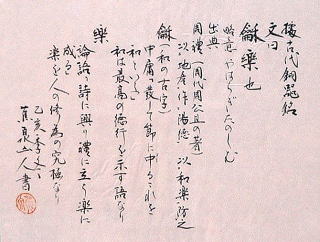 據古代銅器銘
文曰
龢樂也
略意 やはらぎたのしむ
出典
周禮(周代周公旦の著)
以地産作陽徳以和楽防之
龢(和の古字)
中庸 發して節に中るこれを
和といふ
和は最高の徳行を示す語なり
樂
論語 詩に興り禮に立ち樂に
成る
楽を人の修為の究極なり
乙亥季冬
山人書